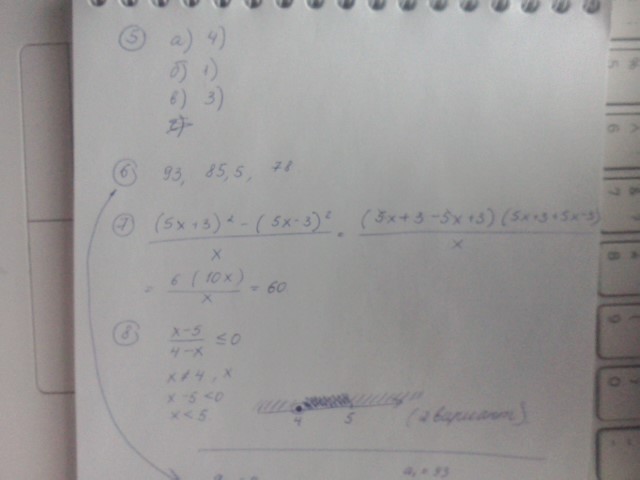 ⑤ а) 4)
б) 1)
в) 3)
⑥ 93, 85,5, 78
⑦ (5x+3)² - (5x-3)² / x = (5x+3-5x+3)(5x+3+5x-3) / x
= 6(10x) / x = 60
⑧ x-5 / 4-x ≤ 0
x ≠ 4, x
x-5<0
x<5
4 5 (2 вариант)
a₁ = 93